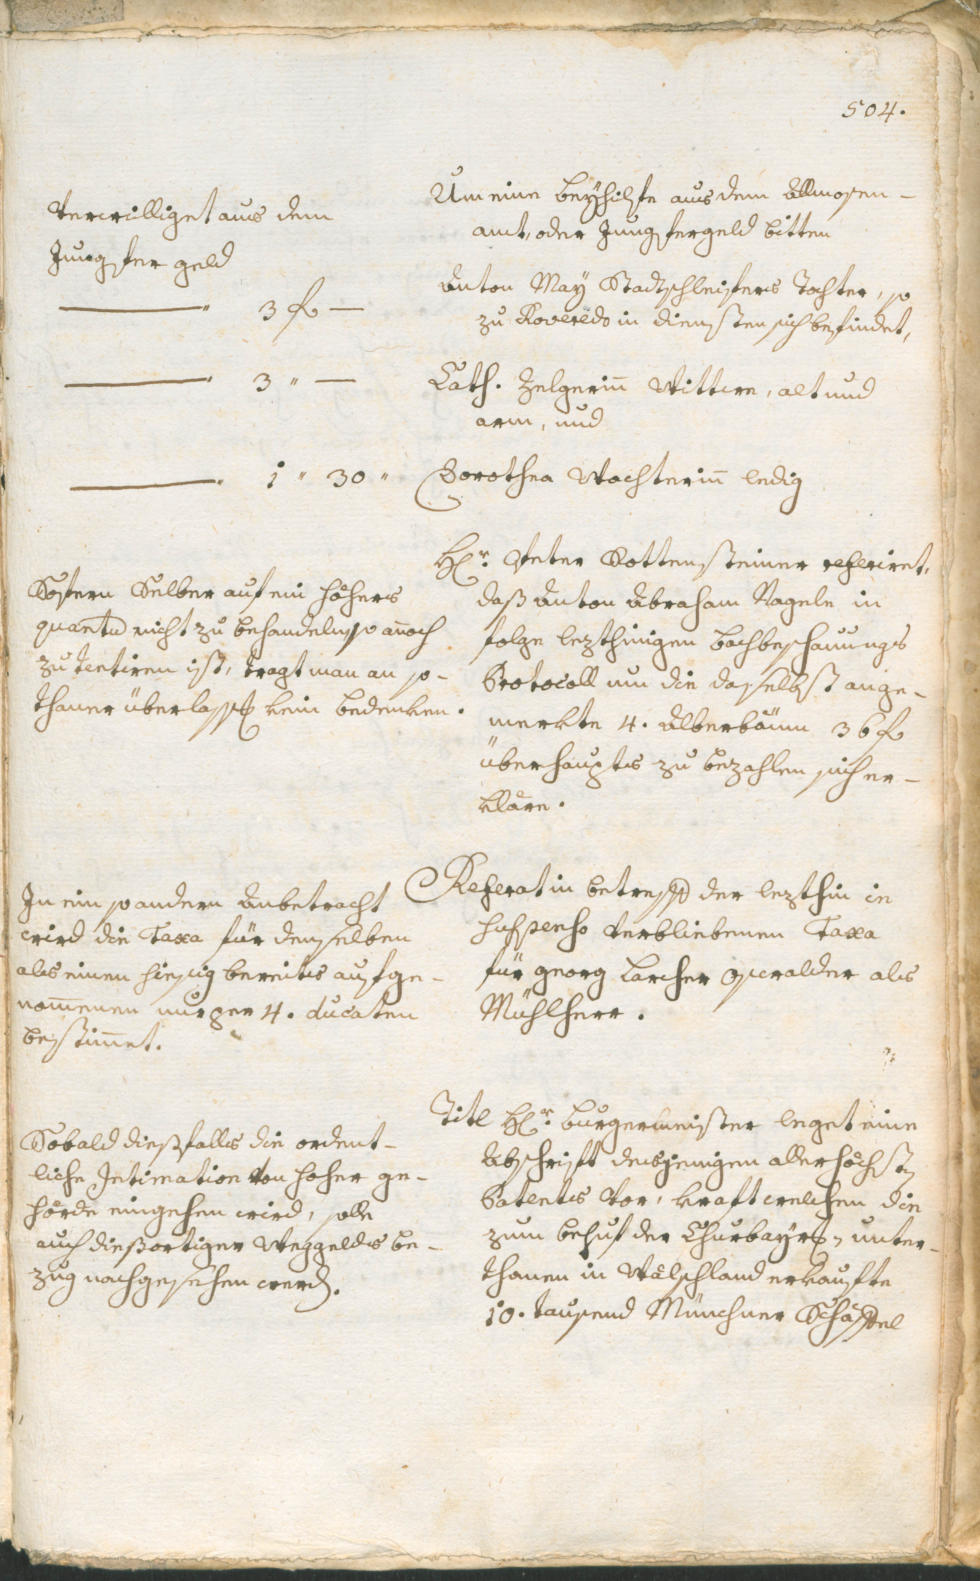 504.
Verwilliget aus dem
Jungfer geld
3 f —
3 " —
1 " 30 "
Um eine beyhilfe aus dem Allmosen-
amt, oder Jungfergeld bitten
Anton May Stadtschleifers Tochter, so
zu Roveredo in diensten sich befindet,
Cath. Zelgerin̄ Wittwe, alt und
arm, und
Dorothea Wachterin̄ ledig
Sofern Selber auf ein höhers
quantu nicht zu behandeln, so an̄och
zu tentiren ist, tragt man an so-
thaner überlassg kein bedenken.
Hr. Peter Kottensteiner referiret,
daß Anton Abraham Nagele in
folge lezthinigen bachbeschauungs
Protocoll um die daselbst ange-
merkte 4. Alberbäum 36 f
überhaupts zu bezahlen sich er-
kläre.
In ein so andern Anbetracht
wird die Taxa für denselben
als einen hiesig bereits aufge-
nom̄enen nur per 4. ducaten
bestim̄et.
Referat in betreff der lezthin in
suspenso verbliebenen Taxa
für Georg Larcher Gwalder als
Mühlherr.
Sobald dießfalls die ordent-
liche Intimation von hoher ge-
hörde eingehen wird, solle
auch dießortiger Weggelds be-
zug nachgesehen werd.
Titl Hr. burgermeister leget eine
Abschrift desjenigen allerhöchst
Patents vor, kraft welchem die
zum behuf der Churbayr. unter-
thanen in Wälschland erkaufte
10. tausend Münchner Schäffel